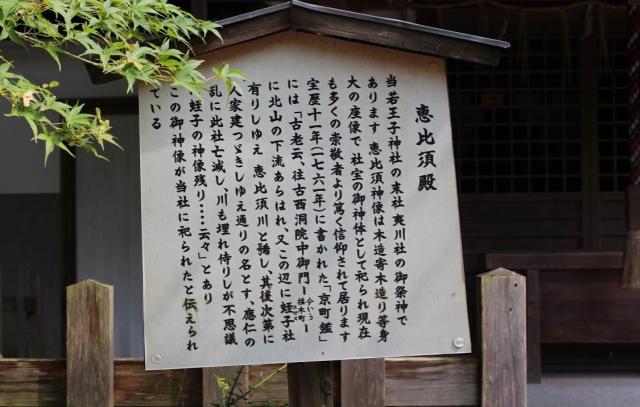 恵比須殿
当若王子神社の末社 夷川社の御祭神で
あります 恵比須神像は木造寄木造り等身
大の座像で 社宝の御神体として祀られ現在
も多くの崇敬者より篤く信仰されて居ります
宝歴十一年(一七六一年)に書かれた「京町鑑」
には「古老云、往古西洞院中御門ー今いう椹木町ー
に北山の下流あらはれ、又この辺に蛭子社
有りしゆえ 恵比須川と號し、其後次第に
人家建つゞきしゆえ通りの名とす、應仁の
乱に此社亡滅し、川も埋れ侍りしが不思議
に蛭子の神像残り・・・・云々」とあり
この御神像が当社に祀られたと伝えられ
ている